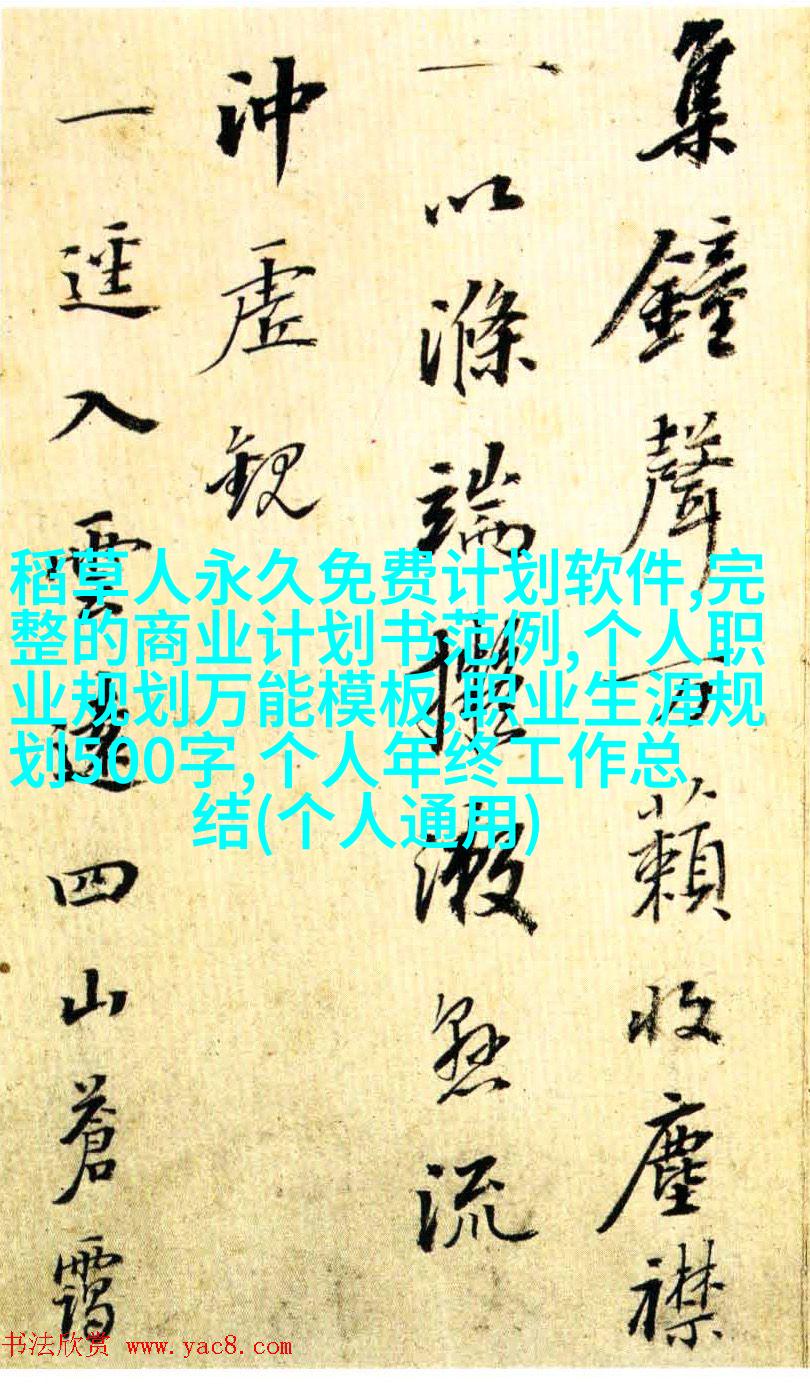 集鐘聲万籟收塵襟
一以滌端激流
沖虛觀
一逕入雲邃四山蒼靄
稻草人永久免费计划软件,完
整的商业计划书范例,个人职
业规划万能模板,职业生涯规
划500字,个人年终工作总
结(个人通用)
书法欣赏 www.yac8.com